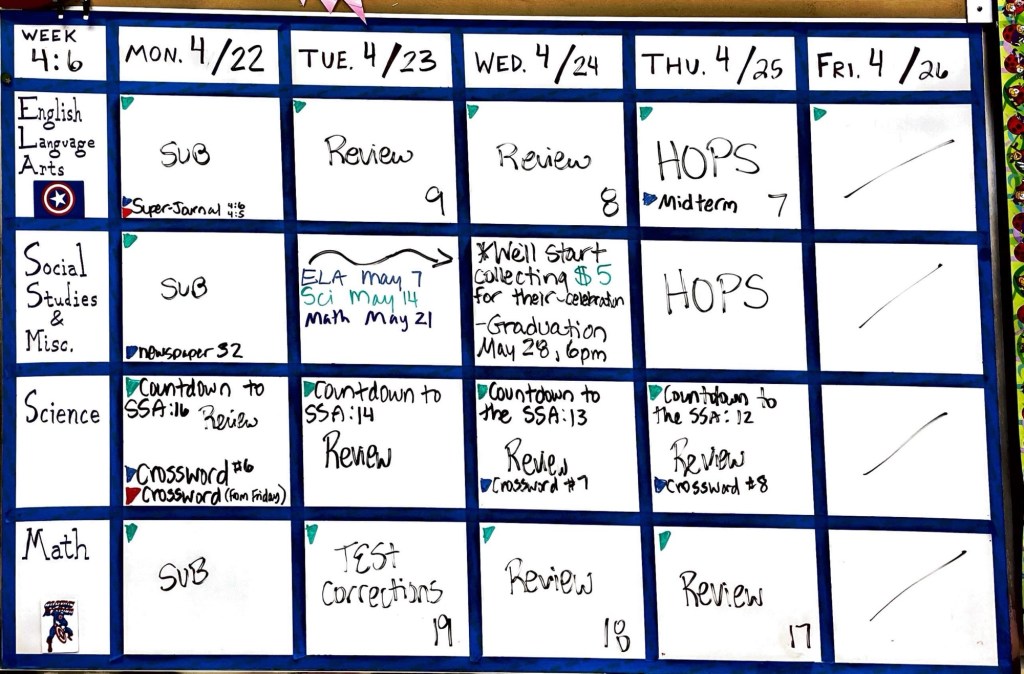 WEEK
4:6
MON. 4/22
TUE. 4/23
WED. 4/24
THU. 4/25
FRI. 4/26
English
Language
Arts
SUB
Super-Journal 4:6
4:5
Review
9
Review
8
HOPS
Midterm 7
Social
Studies
&
Misc.
SUB
newspaper 32
ELA May 7
Sci May 14
Math May 21
*We'll start
collecting $5
for their celebration
-Graduation
May 28, 6pm
HOPS
Science
Countdown to
SSA:16 Review
Crossword #6
Crossword (from Friday)
Countdown to
SSA:14
Review
Countdown to
the SSA:13
Review
Crossword #7
Countdown to
the SSA: 12
Review
Crossword #8
Math
SUB
TEST
Corrections
19
Review
18
Review
17